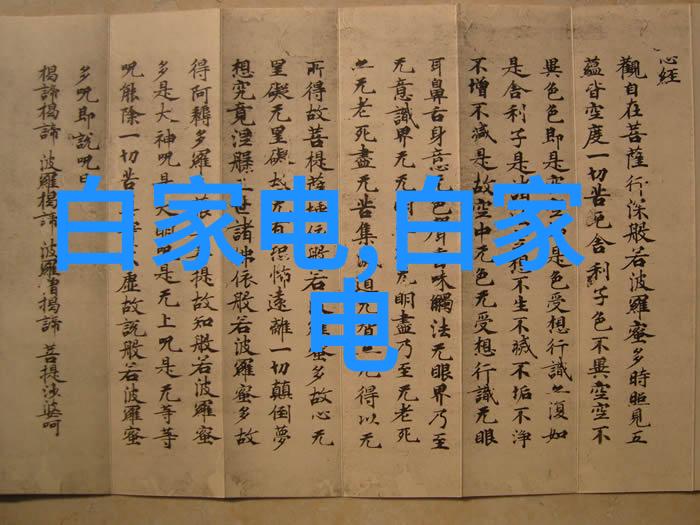 心经
觀自在菩薩行深般若波羅蜜多時照見五
蘊皆空度一切苦厄舍利子色不異空空不
異色色即是空是色受想行識亦復如
是舍利子是想不生不滅不垢不淨
不增不減是故空中无色无受想行識无眼
耳鼻舌身意无色味觸法无眼界乃至
无意識界无无明盡乃至无老死
亦无老死盡无苦集滅道无得以无
所得故菩提薩埵依般若羅蜜多故心无
罣礙无罣礙故无有恐怖遠離一切顛倒夢
想究竟涅槃世諸佛依般若波羅蜜多故
得阿耨多羅菩提故知般若波羅蜜
多是大神呪是大明呪是无上呪是无等等
呪能除一切苦虛故說般若波羅蜜
多呪即說呪曰
揭諦揭諦 波羅揭諦 波羅僧揭諦 菩提娑婆呵
白家电,白家
电